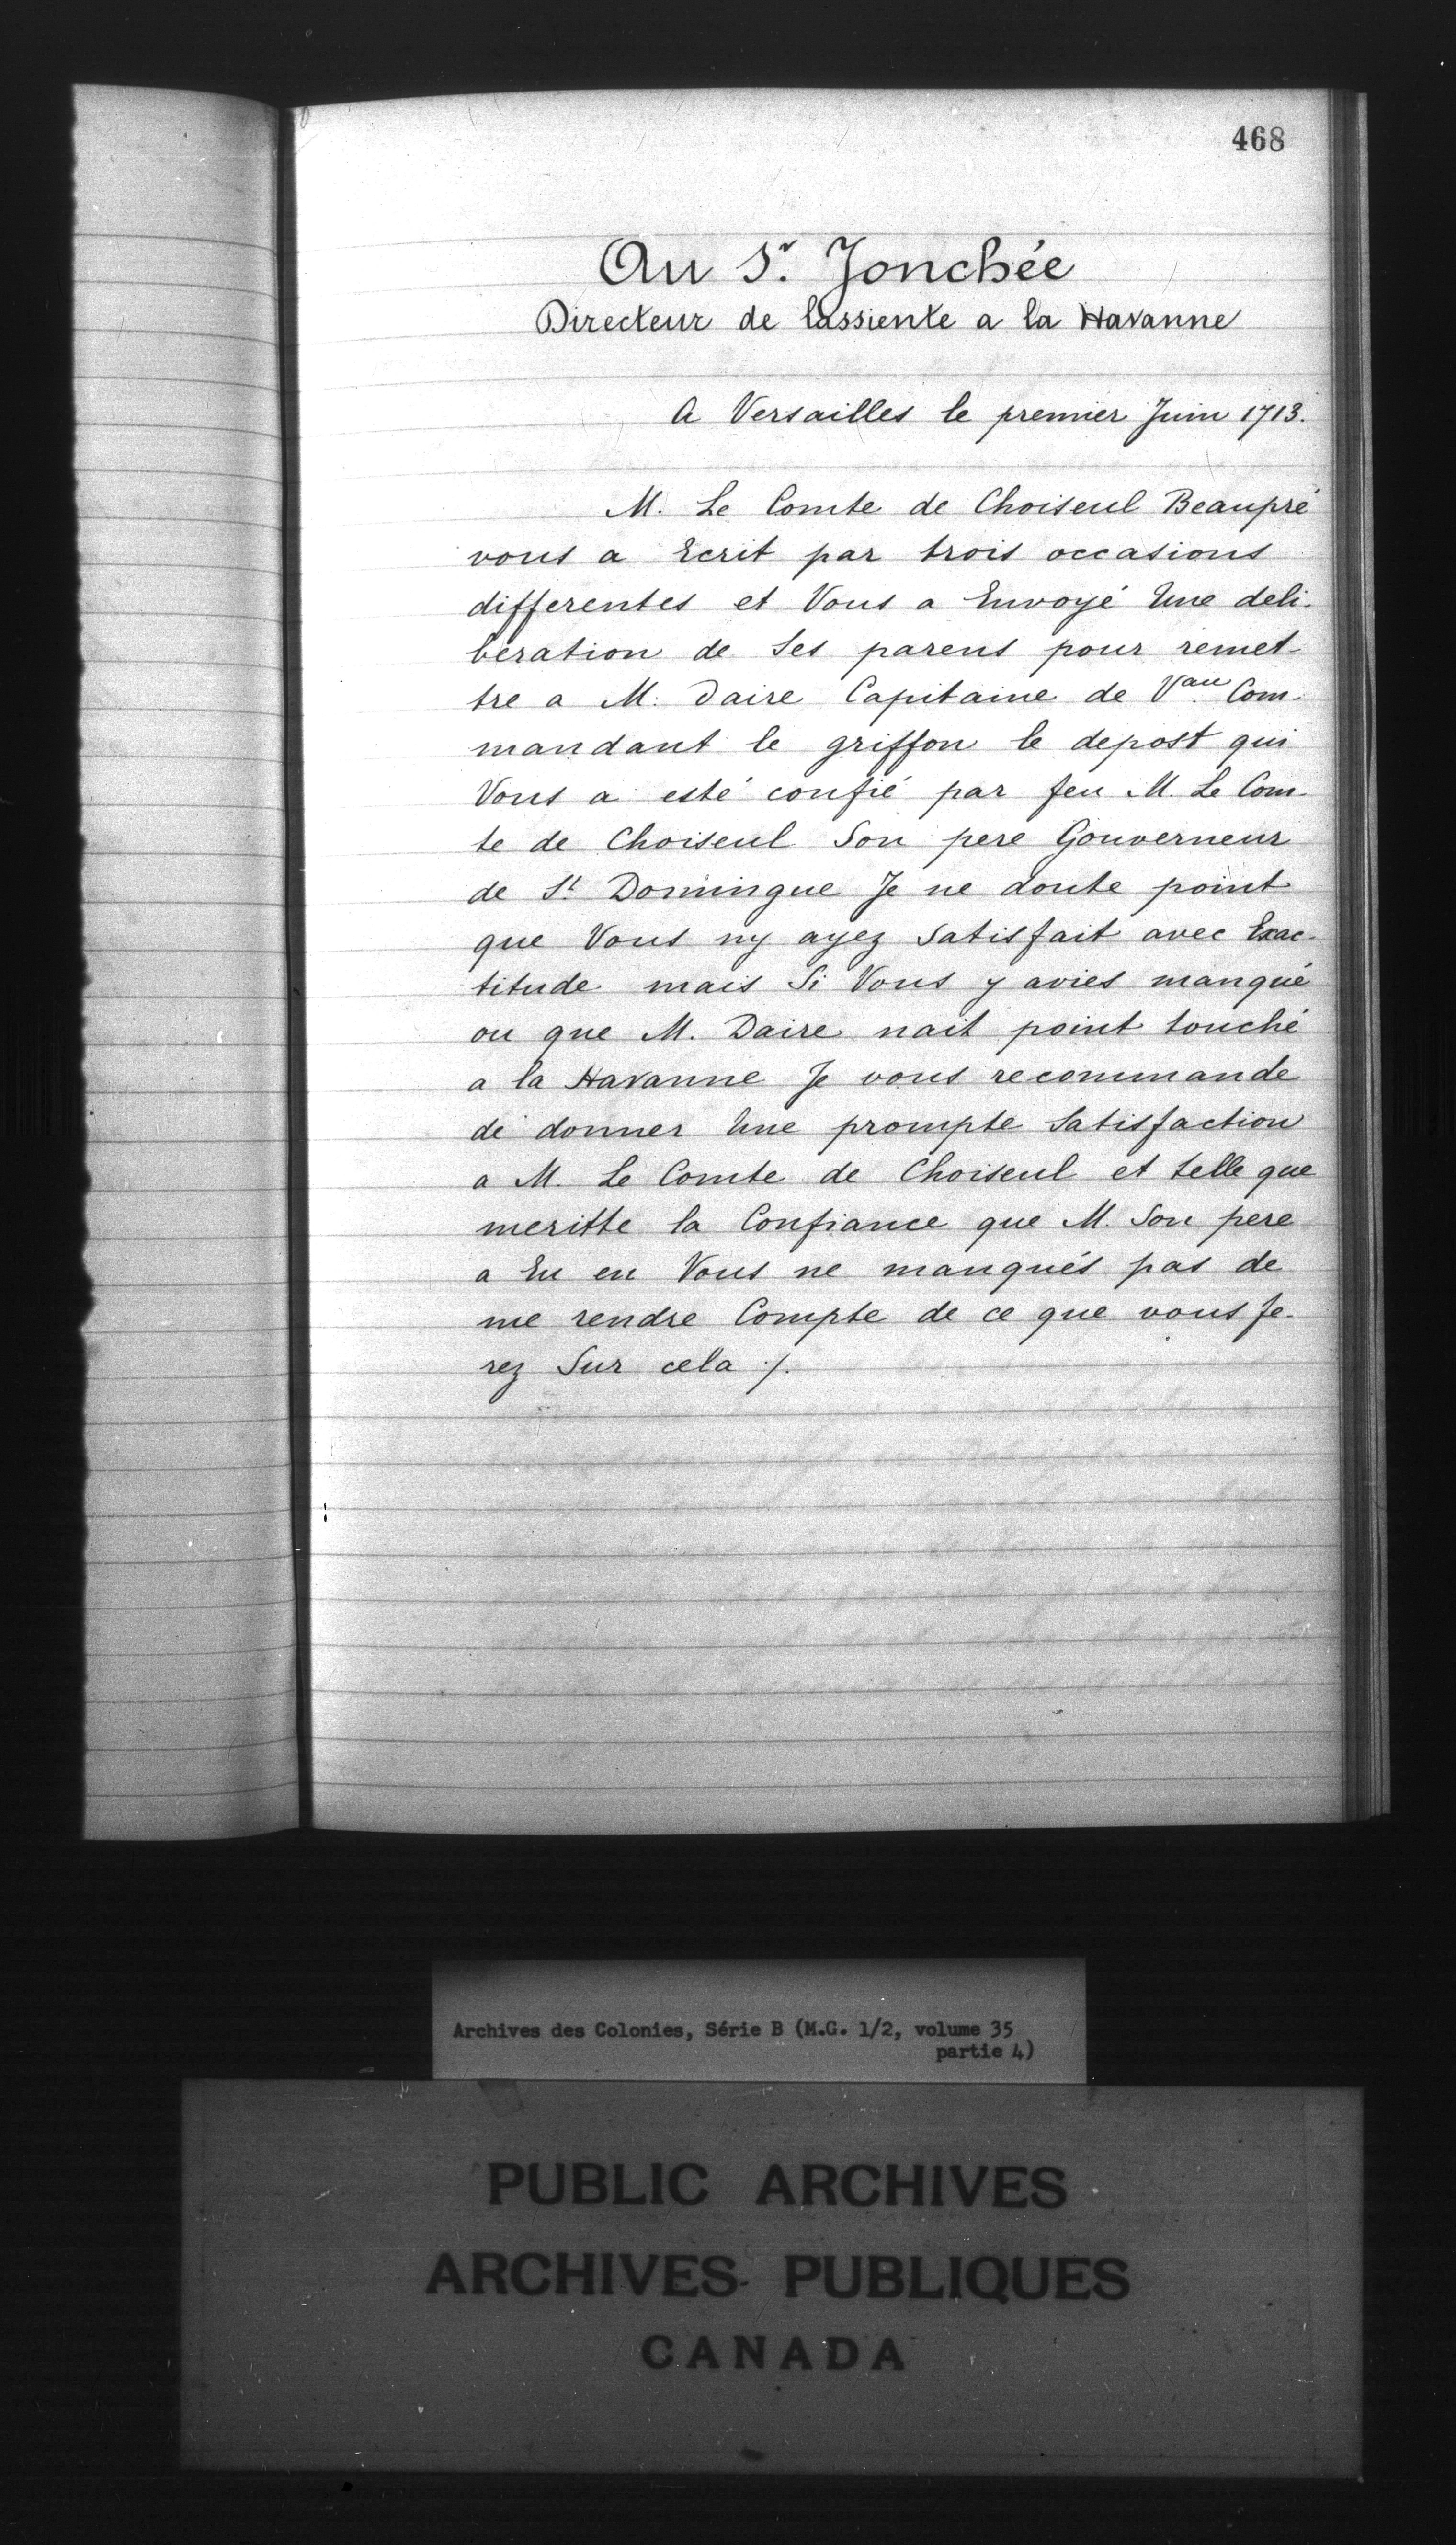 468
Au Sr. Jonchée
Directeur de lassiente a la Havanne
A Versailles le premier Juin 1713.
M. Le Comte de Choiseul Beaupré
vous a Ecrit par trois occasions
differentes et Vous a Envoyé Une deli-
beration de Ses parens pour remet-
tre a M. Daire Capitaine de Vau. Com-
mandant le griffon le depost qui
Vous a esté confié par feu M. Le Com-
te de Choiseul Son pere Gouverneur
de St. Domingue Je ne doute point
que Vous ny ayez Satisfait avec Exac-
titude mais Si Vous y avies manqué
ou que M. Daire nait point touché
a la Havanne Je vous recommande
de donner Une prompte Satisfaction
a M. Le Comte de Choiseul et telle que
meritte la Confiance que M. Son pere
a Eu en Vous ne manqués pas de
me rendre Compte de ce que vous fe-
rez Sur cela ./.
Archives des Colonies, Série B (M.G. 1/2, volume 35
partie 4)
PUBLIC ARCHIVES
ARCHIVES PUBLIQUES
CANADA